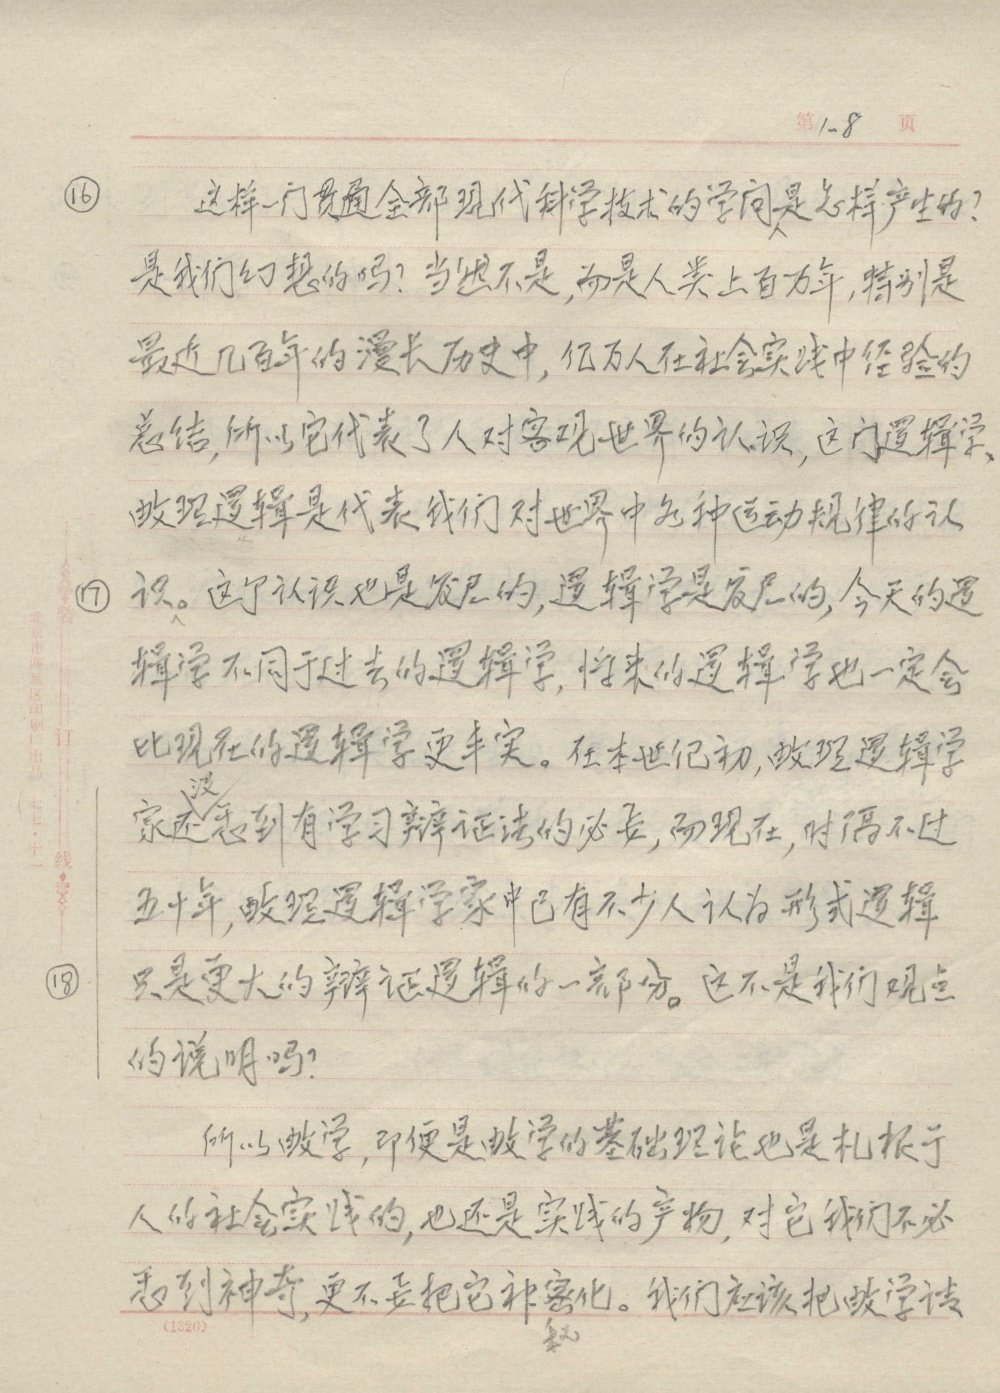 第1-8页
⑯ 这样一门贯通全部现代科学技术的学问是怎样产生的?
是我们幻想的吗?当然不是,而是人类上百万年,特别是
最近几百年的漫长历史中,亿万人在社会实践中经验的
总结,所以它代表了人对客观世界的认识,这门逻辑学、
数理逻辑是代表我们对世界中各种运动规律的认
⑰ 识。这个认识也是发展的,逻辑学是发展的,今天的逻
辑学不同于过去的逻辑学,将来的逻辑学也一定会
比现在的逻辑学更丰实。在本世纪初,数理逻辑学
家还没感到有学习辩证法的必要,而现在,时隔不过
五十年,数理逻辑学家中已有不少人认为形式逻辑
⑱ 只是更大的辩证逻辑的一部分。这不是我们观点
的说明吗?
所以数学,即便是数学的基础理论也是扎根于
人的社会实践的,也还是实践的产物,对它我们不必
感到神奇,更不要把它神密化。我们应该把数学读
秘
(1320)
订
线